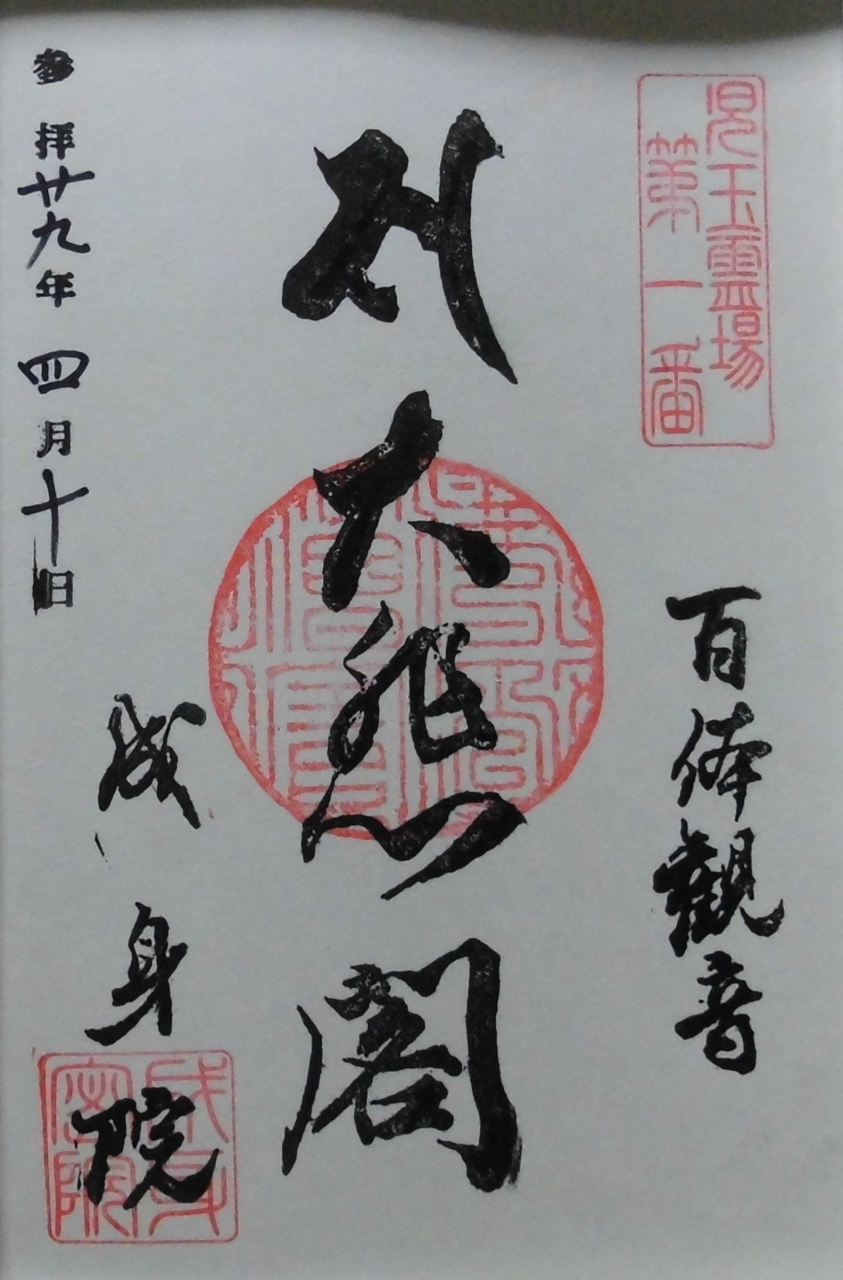 児玉霊場
第一番
百体観音
大悲閣
成身院
成身
密院
参拝廿九年四月十日